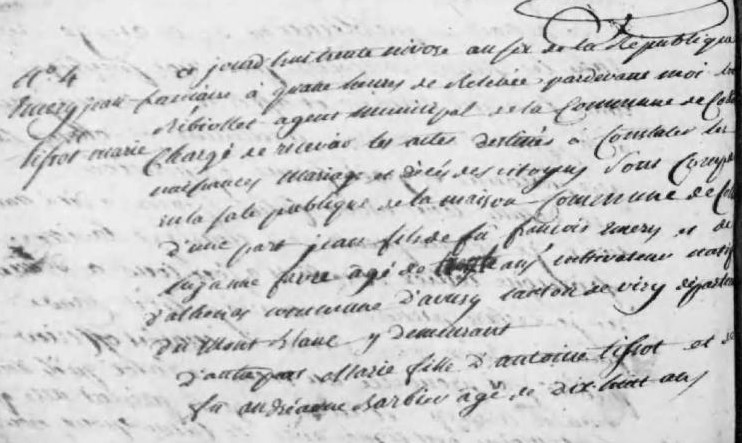 N.° 4
Emery jean
et
Tissot marie
ce jourdhui trente nivose an six de la République
francaise a quatre heures de Relevée pardevant moi
Ribiollet agent municipal de la Commune de
Chargé de recevoir les actes destinés à Constater les
naissances mariages et décès des citoyens sont Comp
en la sale publique de la maison Commune de
d'une part jean fils de fû françois Emery et de
suzanne favre agé de ans cultivateur natif
commune d'avusy canton de viry départ
du Mont Blanc y demeurant
d'autre part Marie fille d'antoine tissot et de
fû andréanne Barbier agé de dix huit ans